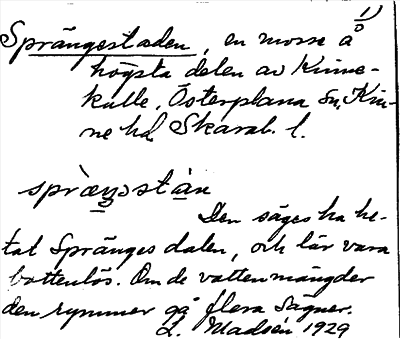 1)
Sprängestaden, en mosse å
högsta delen av Kinne-
kulle, Österplana sn, Kin-
ne hd, Skarab. l.
spræŋəstàn
Den säges ha he-
tat Spränges dalen, och lär vara
bottenlös. Om de vattenmängder
den rymmer gå flera sägner.
L. Madsén 1929